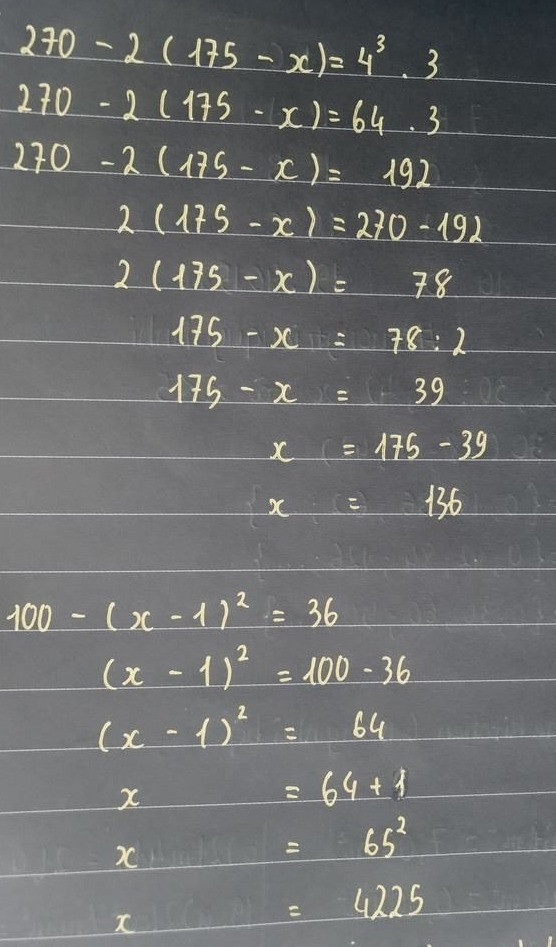 270 - 2 ( 175 - x ) = 4³ . 3
270 - 2 ( 175 - x ) = 64 . 3
270 - 2 ( 175 - x ) = 192
2 ( 175 - x ) = 270 - 192
2 ( 175 - x ) = 78
175 - x = 78 : 2
175 - x = 39
x = 175 - 39
x = 136
100 - ( x - 1 )² = 36
( x - 1 )² = 100 - 36
( x - 1 )² = 64
x = 64 + 1
x = 65²
x = 4225